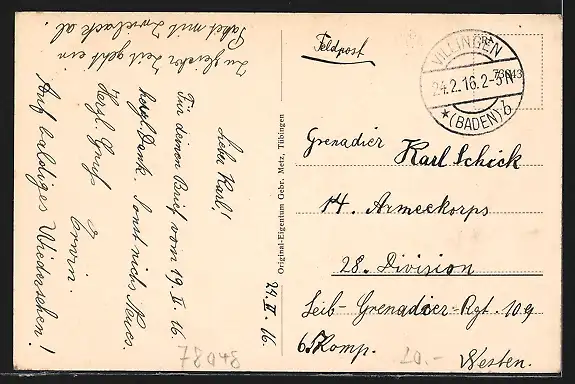 Feldpost
VILLINGEN
24.2.16.2-3N
* (BADEN) b
73043
Grenadier Karl Schick
14. Armeekorps
28. Division
Leib-Grenadier-Rgt. 109
6. Komp.
Westen.
Original-Eigentum Gebr. Metz, Tübingen
24.II.16.
Lieber Karl!
Für deinen Brief vom 19.II.16.
herzl. Dank. Sonst nichts Neues.
Herzl. Gruß
Erwin.
Auf baldiges Wiedersehen!
Zu gleicher Zeit geht ein
Paket mit Zwieback ab.
78048
20.-